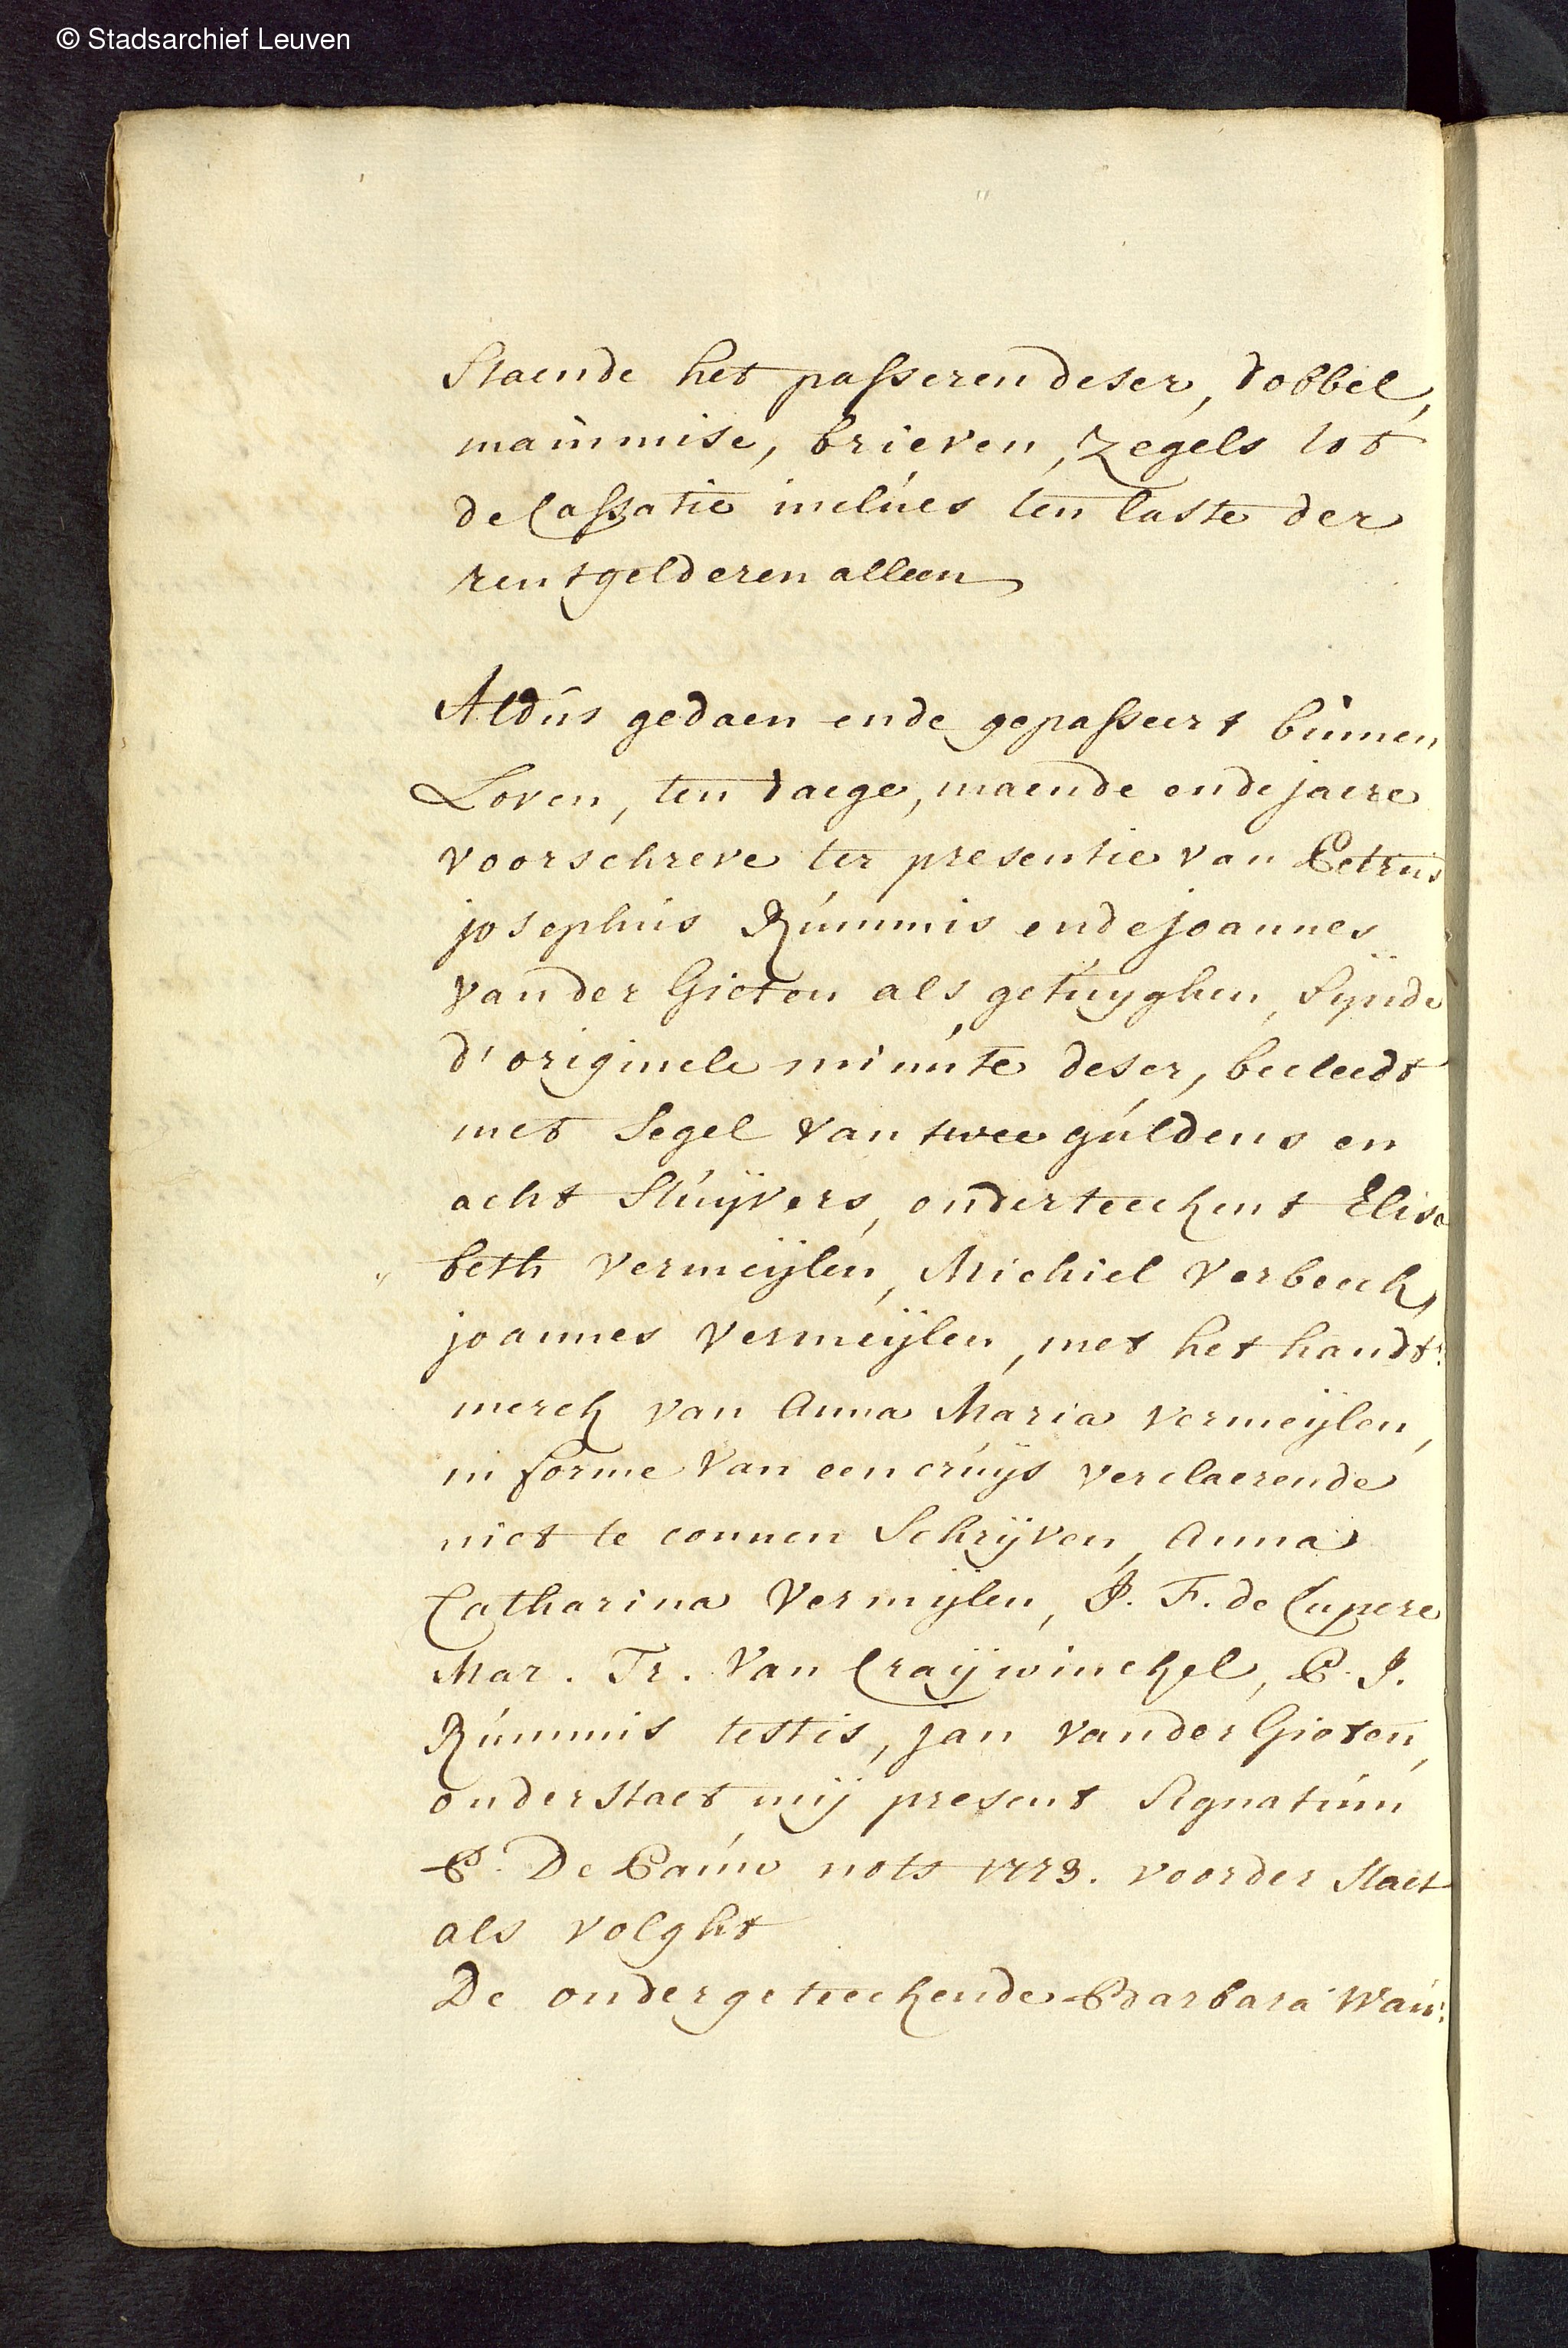 © Stadsarchief Leuven
Staende het passeren deser, dobbel,
mainmise, brieven, Zegels tot
de Cassatie inclues ten laste der
rentgelderen alleen
Aldus gedaen ende gepasseert binnen
Loven, ten daege, maende ende jaere
voorschreve ter presentie van Petrus
josephus Rummis ende joannes
vander Gieten als getuyghen, Synde
d'originele minute deser, becleedt
met Segel van twee guldens en
acht Stuyvers, onderteeckent Elisa
beth Vermeijlen, Michiel Verbeeck,
joannes Vermeijlen, met het handt:
merck van Anna Maria Vermeijlen,
in forme van een cruijs verclaerende
niet te connen Schrijven, Anna
Catharina Vermijlen, J. F. de Cupere
Mar. Tr. Van Craijwinckel, P. J.
Rummis testis, jan vander Gieten,
onderstaet mij present Signatum
P. De Pauw nots 1773. voorder Staet
als volght
De ondergeteeckende Barbara Wau: